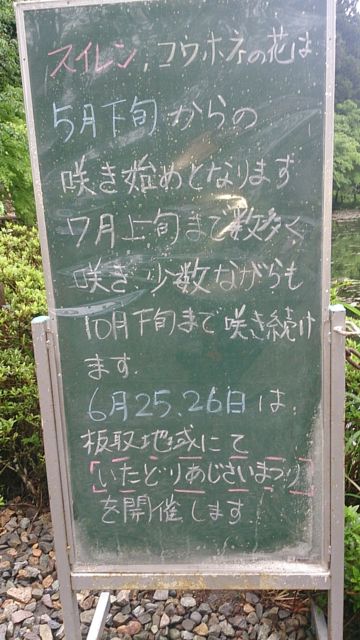 スイレン,コウホネの花は
5月下旬からの
咲き始めとなります
7月上旬まで数多く
咲き、少数ながらも
10月下旬まで咲き続け
ます.
6月25.26日は、
板取地域にて
「いたどりあじさいまつり」
を開催します.